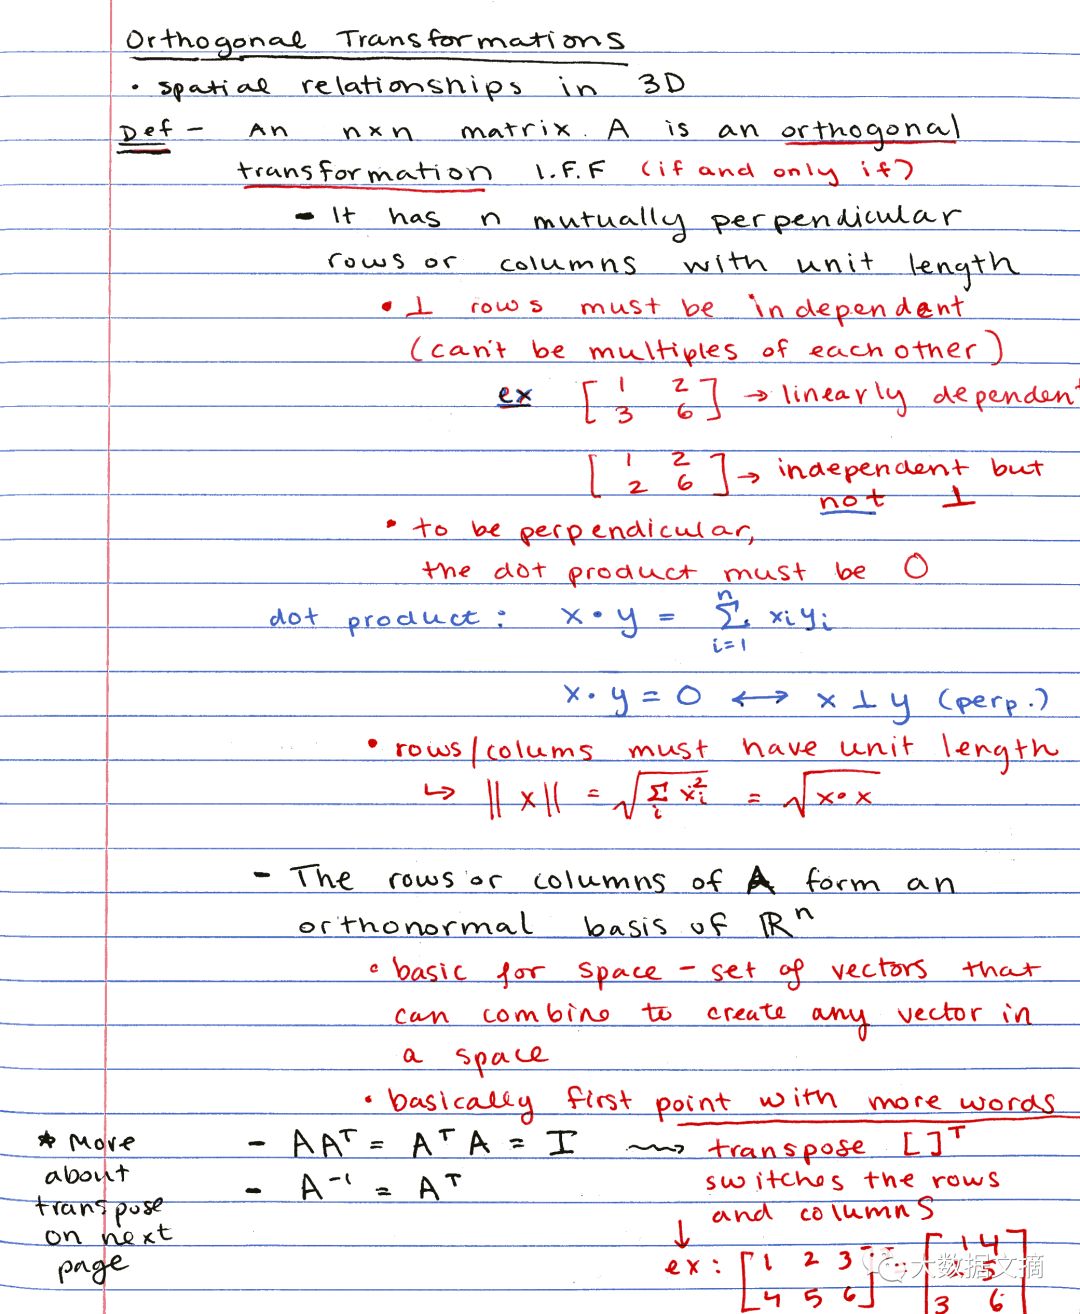 Orthogonal Transformations
• spatial relationships in 3D
Def – An n×n matrix A is an orthogonal
transformation I.F.F (if and only if)
- It has n mutually perpendicular
rows or columns with unit length
• ⊥ rows must be independent
(can't be multiples of each other)
ex [1 2
3 6] → linearly dependent
[1 2
2 6] → independent but
not ⊥
• to be perpendicular,
the dot product must be 0
dot product: x·y = Σ_{i=1}^{n} x_i y_i
x·y = 0 ↔ x ⊥ y (perp.)
• rows/colums must have unit length
↳ ||x|| = √(Σ_i x_i^2) = √(x·x)
- The rows or columns of A form an
orthonormal basis of ℝ^n
• basic for space – set of vectors that
can combine to create any vector in
a space
• basically first point with more words
- AA^T = A^T A = I ⇝ transpose [ ]^T
- A^-1 = A^T switches the rows
and columns
* More
about
transpose
on next
page
↓
ex: [1 2 3
4 5 6]^T = [1 4
5
3 6]
大数据文摘